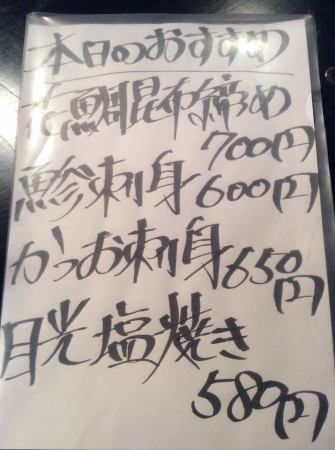 本日のおすすめ
花鯛昆布締め
700円
鯵刺身600円
かつお刺身650円
目光塩焼き
580円